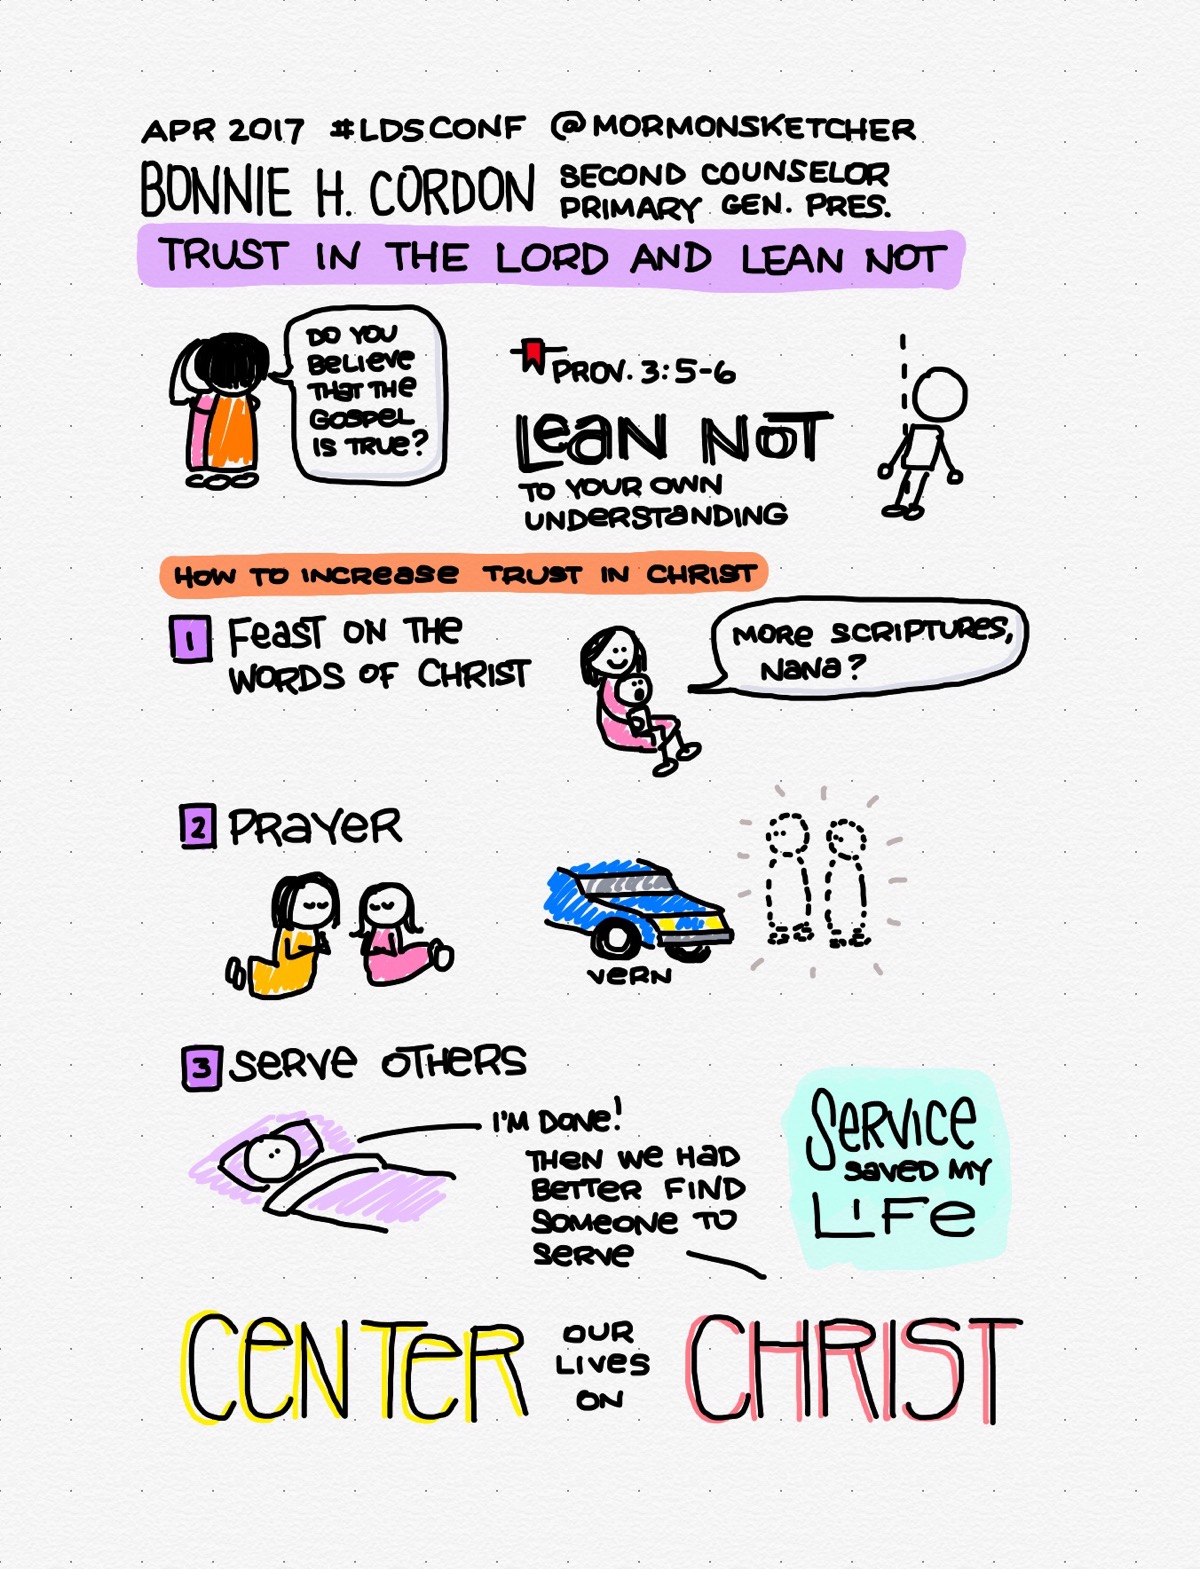 APR 2017 #LDSCONF @MORMONSKETCHER
BONNIE H. CORDON
SECOND COUNSELOR
PRIMARY GEN. PRES.
TRUST IN THE LORD AND LEAN NOT
DO YOU
BELIEVE
THAT THE
GOSPEL
IS TRUE?
PROV. 3:5-6
LEAN NOT
TO YOUR OWN
UNDERSTANDING
HOW TO INCREASE TRUST IN CHRIST
1 FEAST ON THE
WORDS OF CHRIST
MORE SCRIPTURES,
NANA?
2 PRAYER
VERN
3 SERVE OTHERS
I'M DONE!
THEN WE HAD
BETTER FIND
SOMEONE TO
SERVE
SERVICE
SAVED MY
LIFE
CENTER
OUR
LIVES
ON
CHRIST